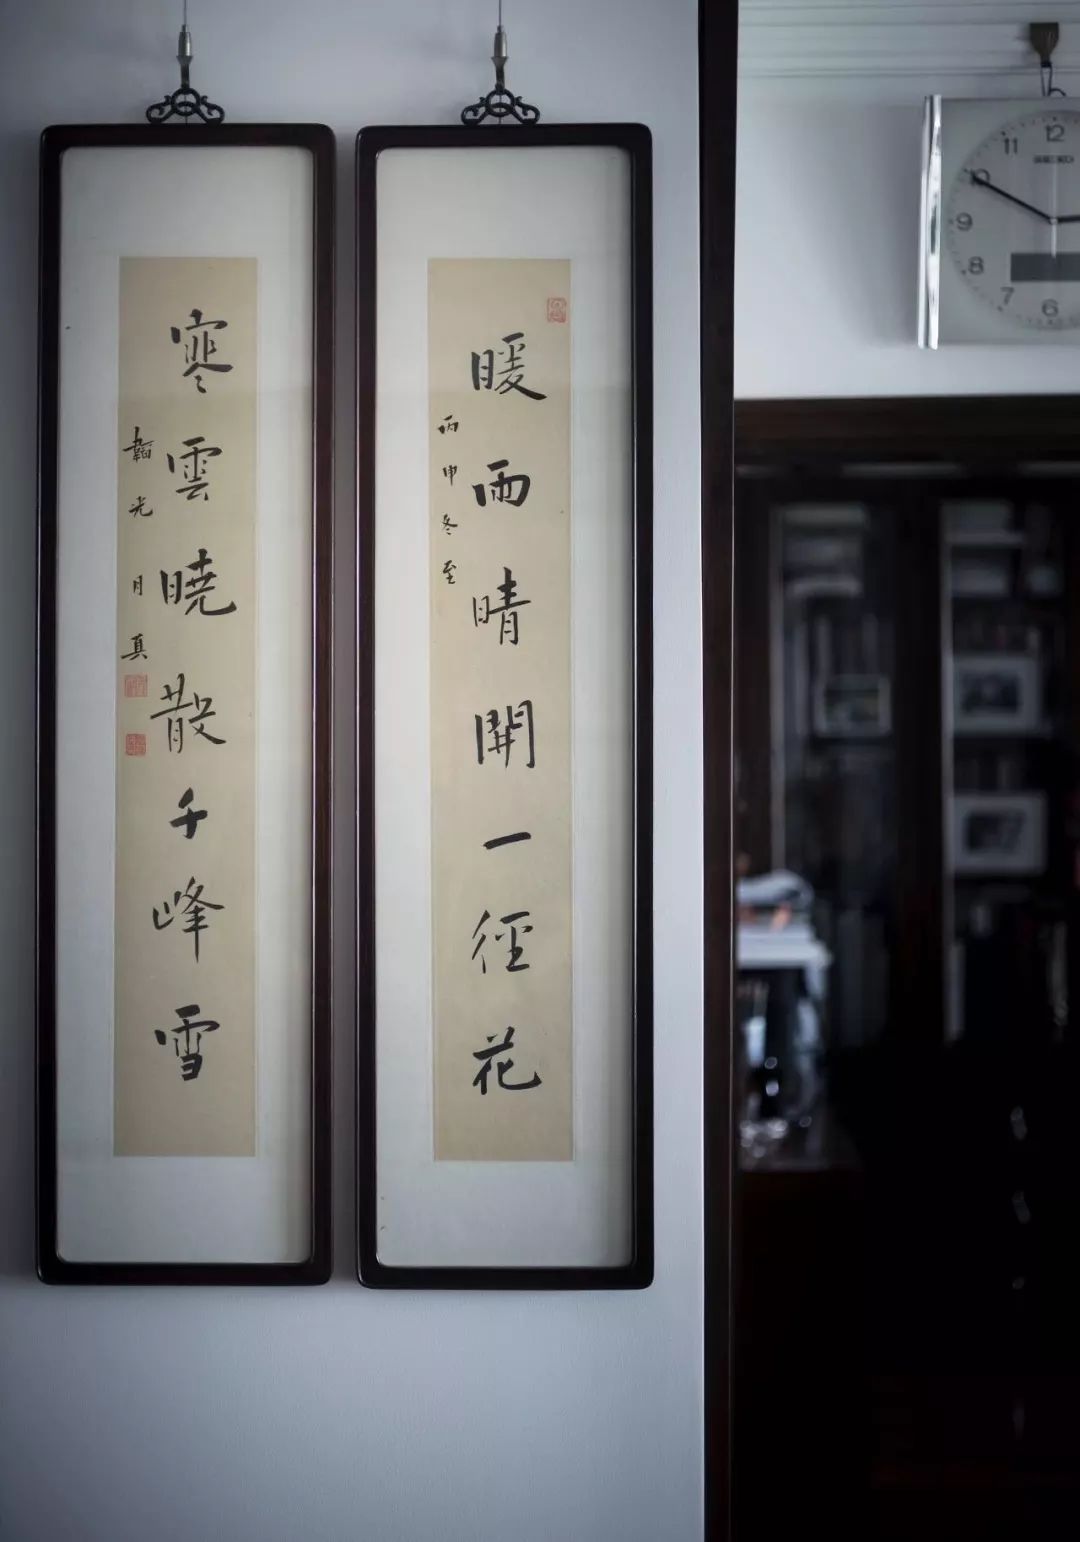 暖雨晴開一徑花
丙申冬至
寒雲曉散千峰雪
韜光
月真
12
11
SEIKO
10
9
8
7
6